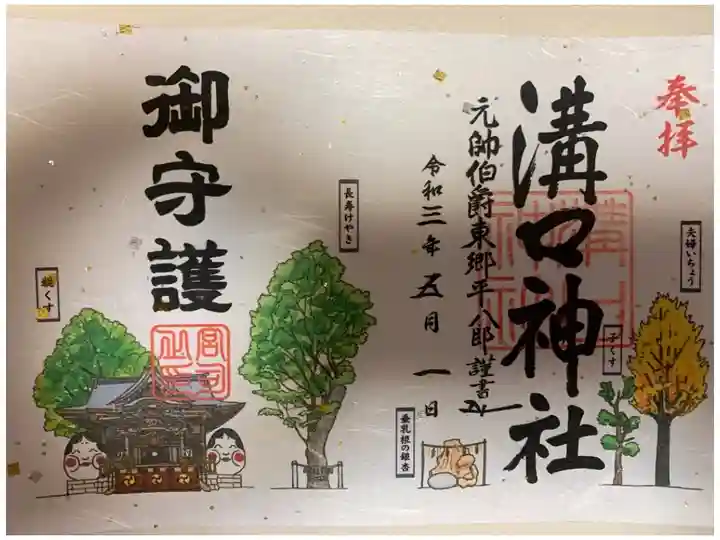 奉拝
溝口神社
溝口
神社
元帥伯爵東郷平八郎謹書
令和三年五月一日
夫婦いちょう
子くす
垂乳根の銀杏
長寿けやき
御守護
宮司
之印
親くす